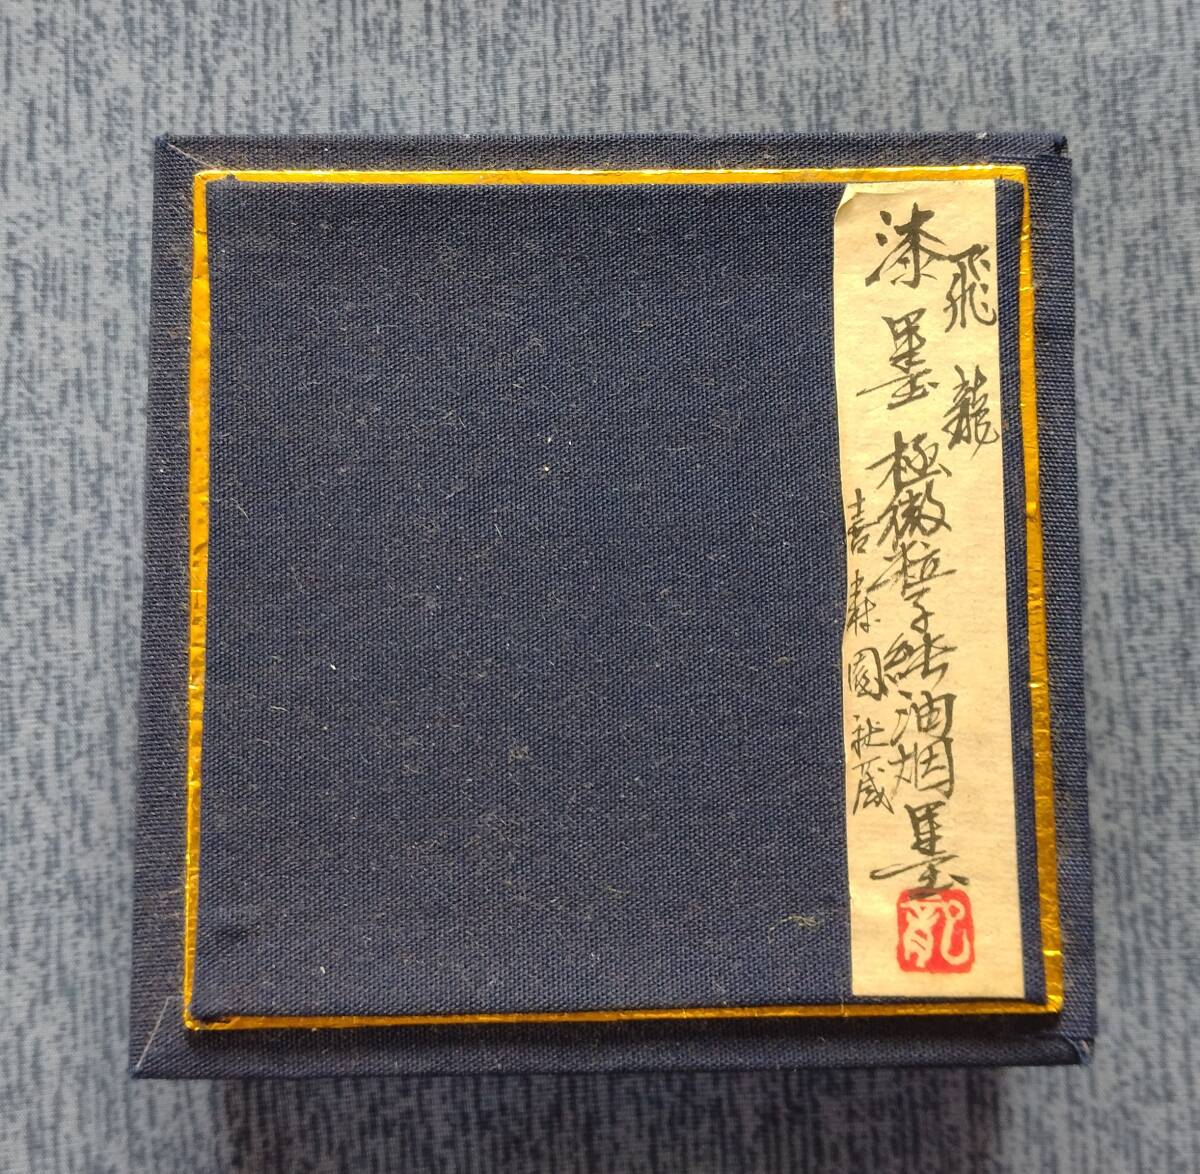 飛龍
漆墨 極微粒子純油烟墨
喜壽園秘蔵
龍